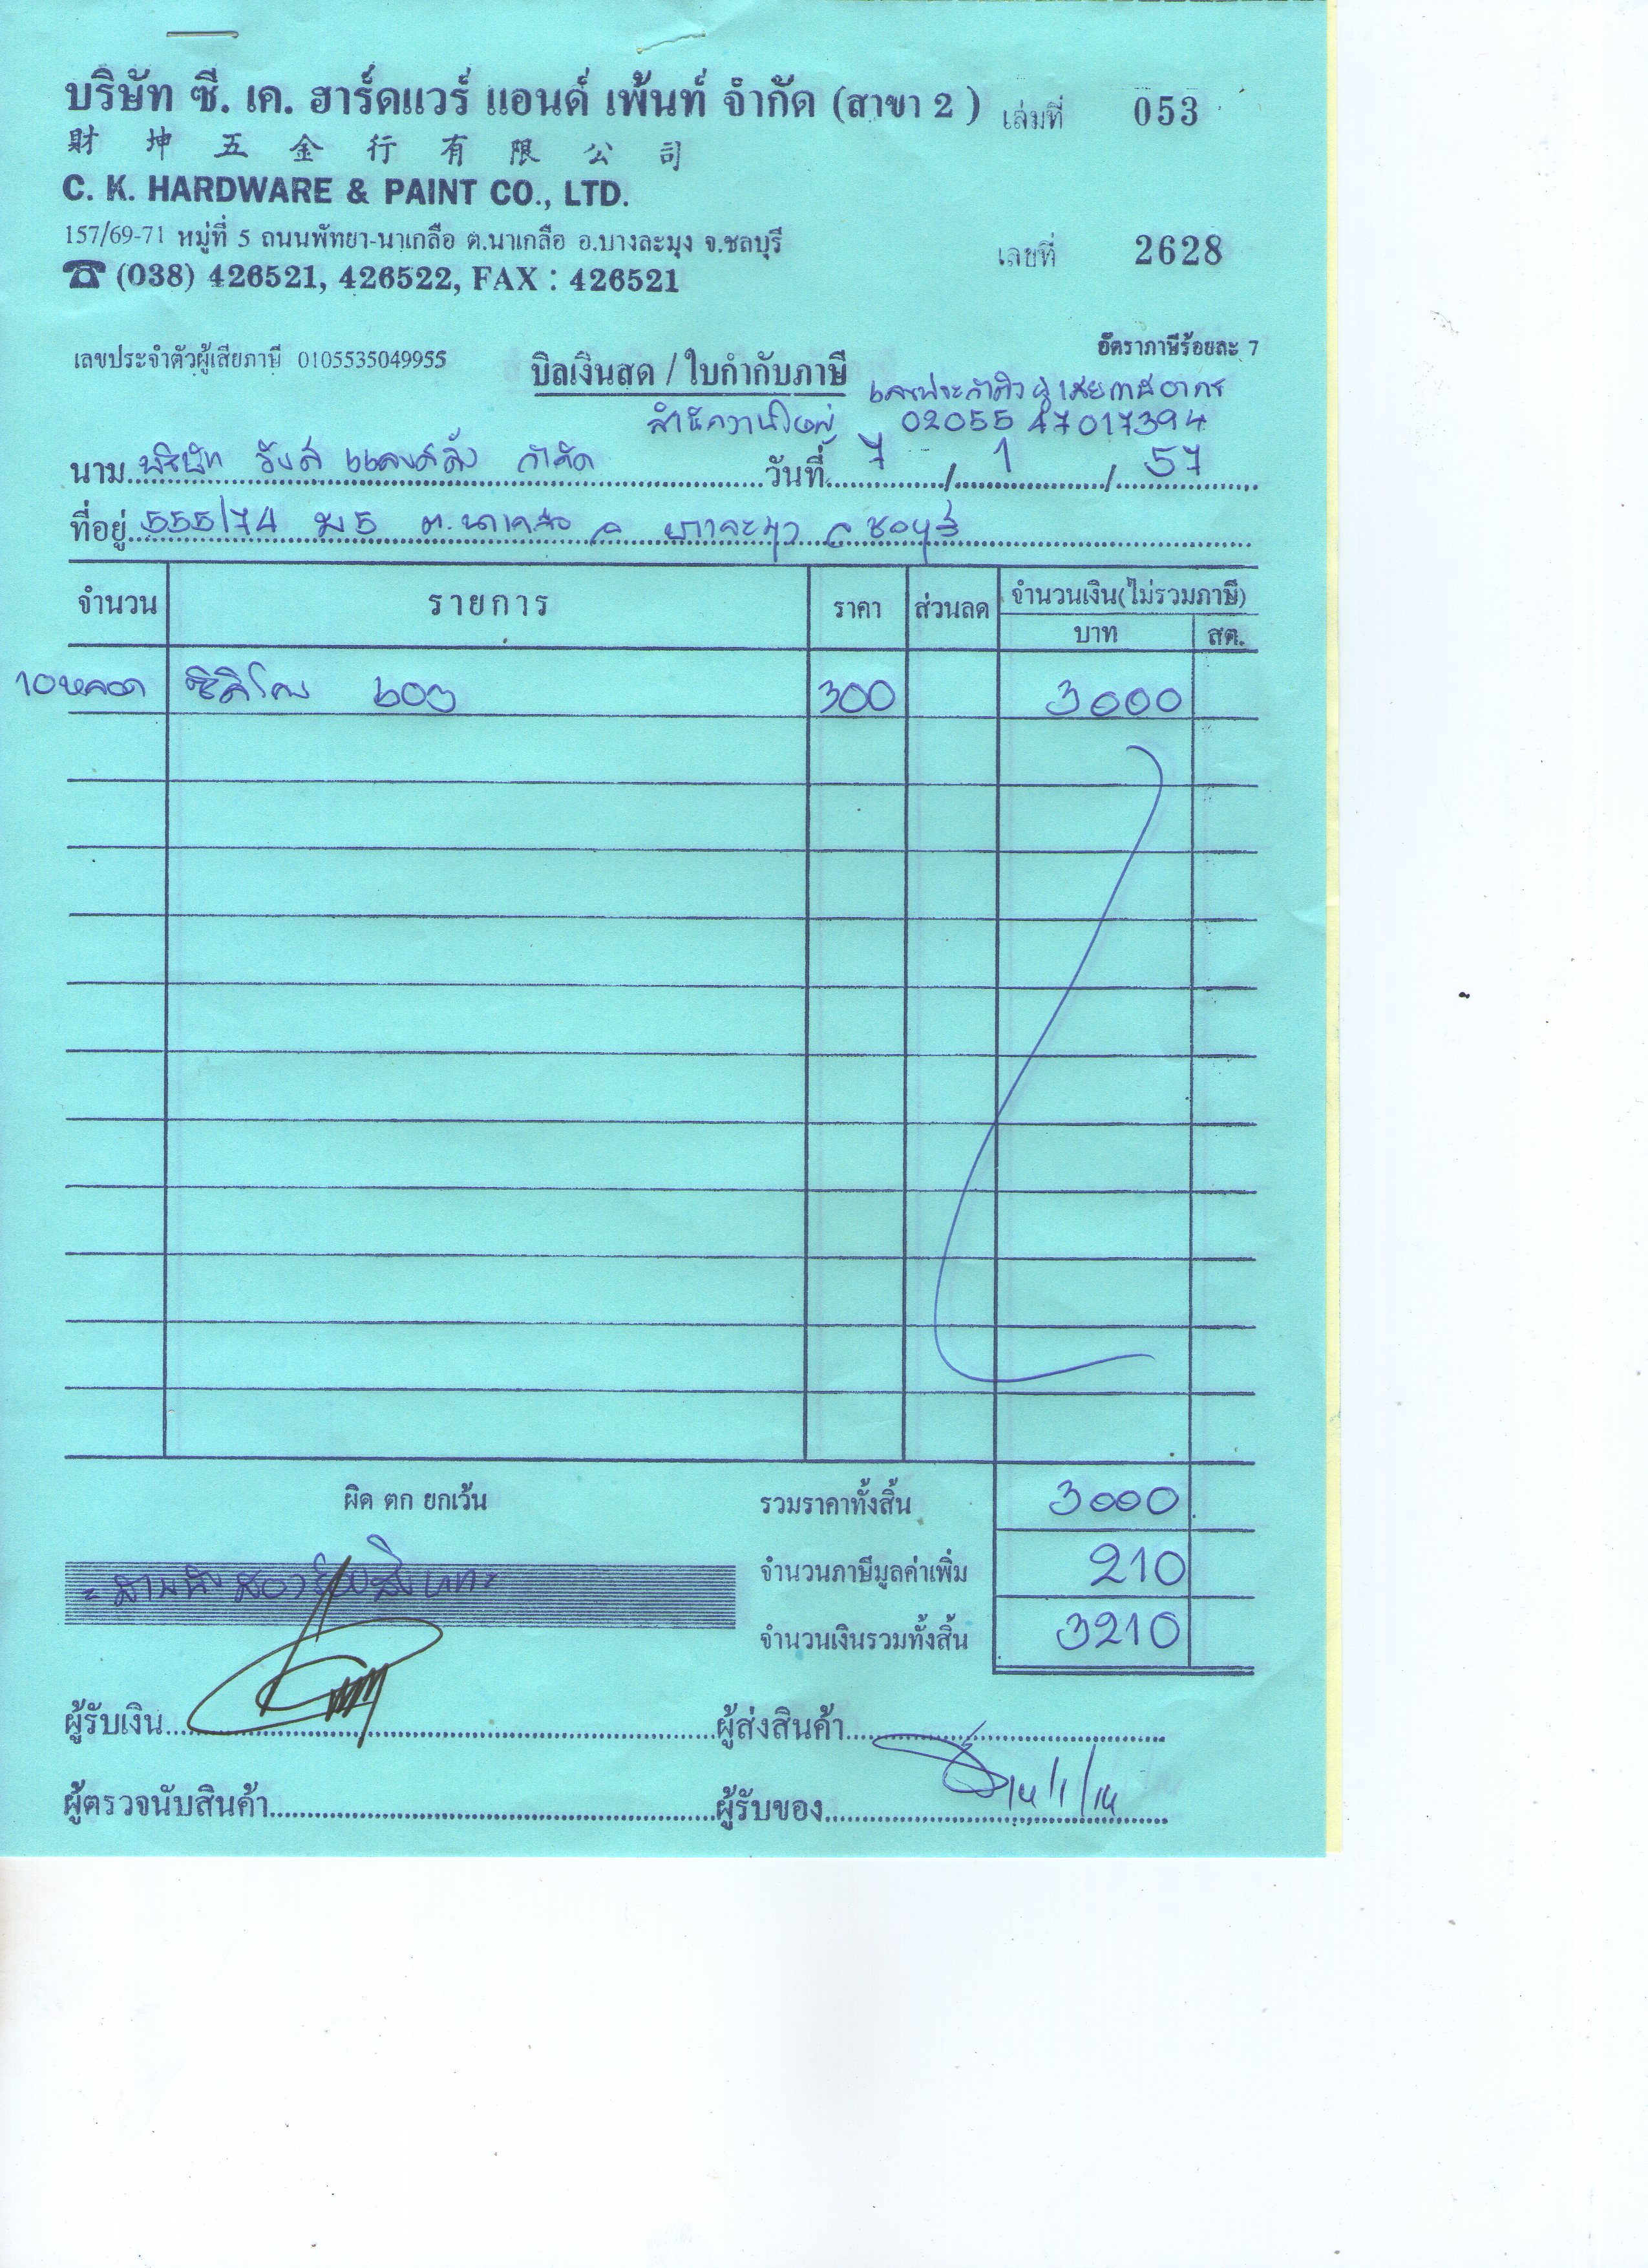 บริษัท ซี. เค. ฮาร์ดแวร์ แอนด์ เพ้นท์ จำกัด (สาขา 2 ) เล่มที่ 053
財坤五金行有限公司
C. K. HARDWARE & PAINT CO., LTD.
157/69-71 หมู่ที่ 5 ถนนพัทยา-นาเกลือ ต.นาเกลือ อ.บางละมุง จ.ชลบุรี เลขที่ 2628
☎ (038) 426521, 426522, FAX : 426521
อัตราภาษีร้อยละ 7
เลขประจำตัวผู้เสียภาษี 0105535049955 บิลเงินสด / ใบกำกับภาษี เลขประจำตัวผู้เสียภาษีอากร
สำนักงานใหญ่ 02055 47017394
นาม บริษัท จำกัด วันที่ 7 / 1 / 57
ที่อยู่ 555/74 ม 5 ต.นาเกลือ อ บางละมุง จ ชลบุรี
จำนวน รายการ ราคา ส่วนลด จำนวนเงิน(ไม่รวมภาษี)
บาท สต.
10หลอด ซิลิโคน 300 3000
ผิด ตก ยกเว้น รวมราคาทั้งสิ้น 3000
จำนวนภาษีมูลค่าเพิ่ม 210
= สามพันสองร้อยสิบบาท =
จำนวนเงินรวมทั้งสิ้น 3210
ผู้รับเงิน ผู้ส่งสินค้า
ผู้ตรวจนับสินค้า ผู้รับของ 14/1/14